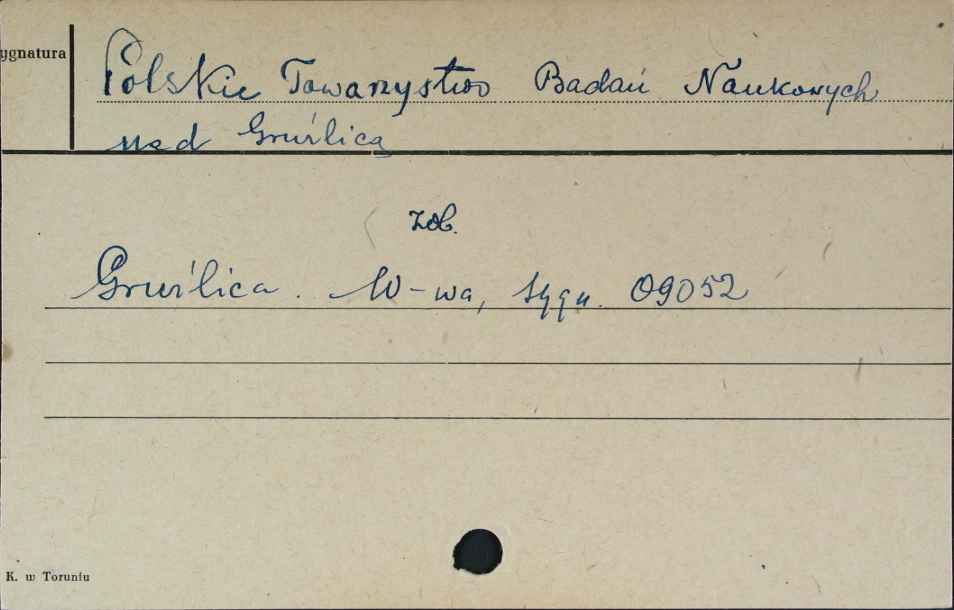 ygnatura
Polskie Towarzystwo Badań Naukowych
nad Gruźlicą
zob.
Gruźlica. W-wa, sygn. 09052
K. w Toruniu